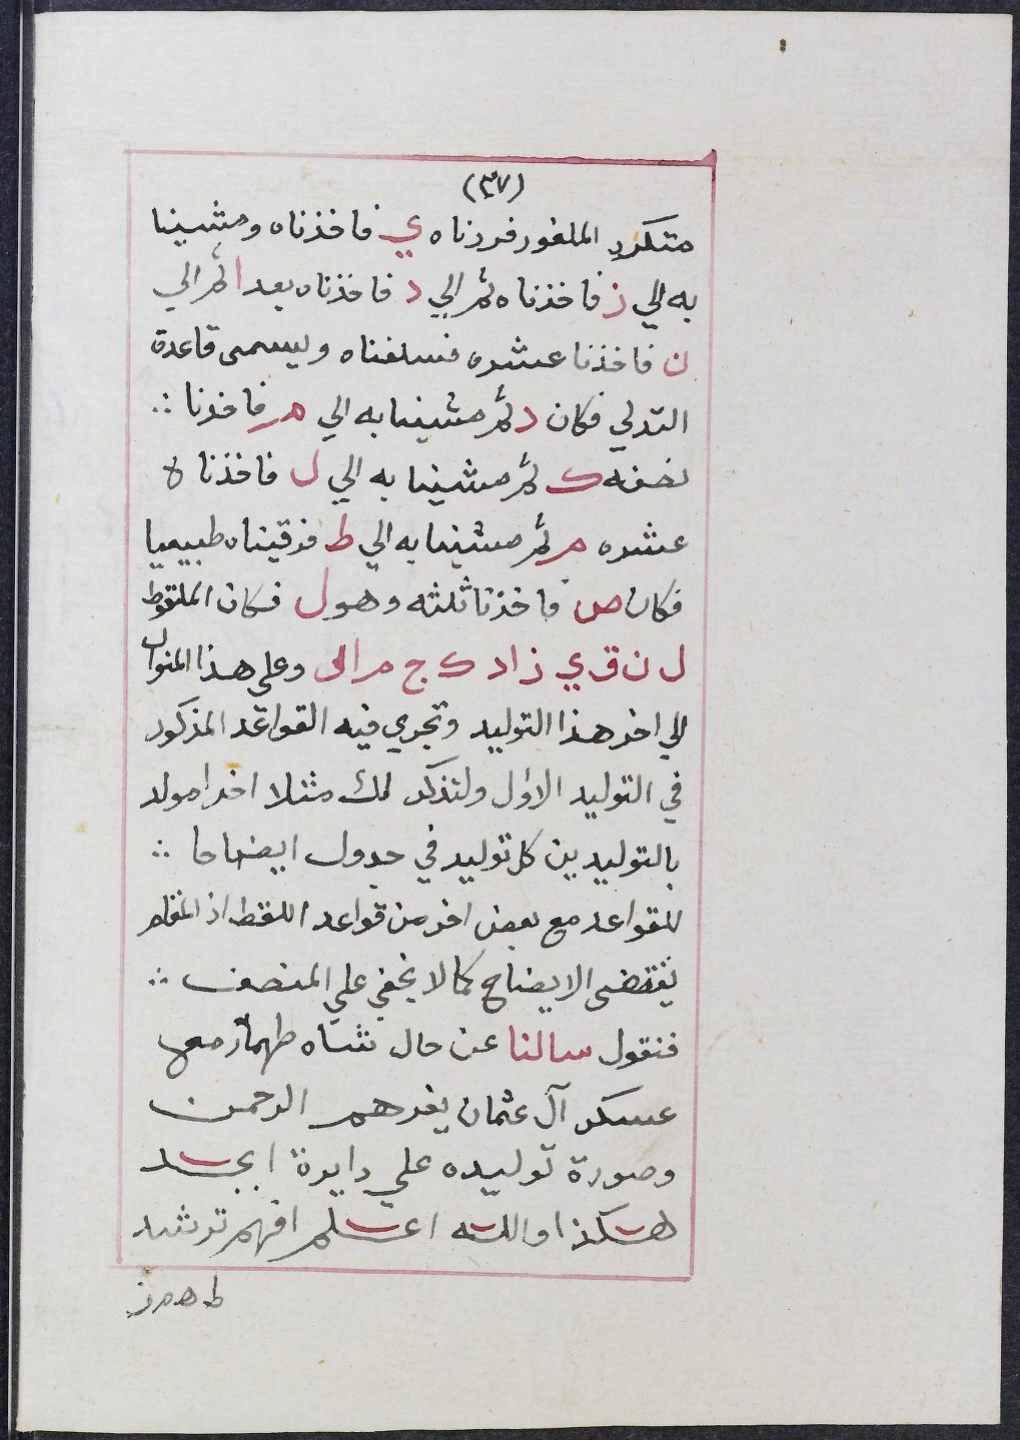 (٣٧)
متكرر الملفوز فرزناه ي فاخذناه ومشينا
به الي ز فاخذناه ثم الي د فاخذناه بعد ا ثم الي
ن فاخذنا عشره فسلفناه ويسمى قاعدة
التدلي فكان د ثم مشينا به الي م فاخذنا ∴
نصفه ك ثم مشينا به الي ل فاخذنا ه
عشره م ثم مشينا به الي ط فرقيناه طبيعيا
فكان ص فاخذنا ثلثه وهو ل فكان الملقوط
ل ن ق ي ز ا د ك ج م ا ل ى وعلى هذا المنوال
الي اخر هذا التوليد وتجري فيه القواعد المذكور
في التوليد الاول ولنذكر لك مثلا اخر مولد
بالتوليدين كل توليد في جدول ايضاحا ∴
للقواعد مع بعض اخر من قواعد اللقط اذ المقام
يقتضى الايضاح كما لا يخفي علي المنصف ∴
فنقول سالنا عن حال شاه طهماز مع
عسكر آل عثمان يغرهم الرحمن
وصورة توليده علي دايرة ابجد
هكذا والله اعلم افهم ترشد
ط ه م ز